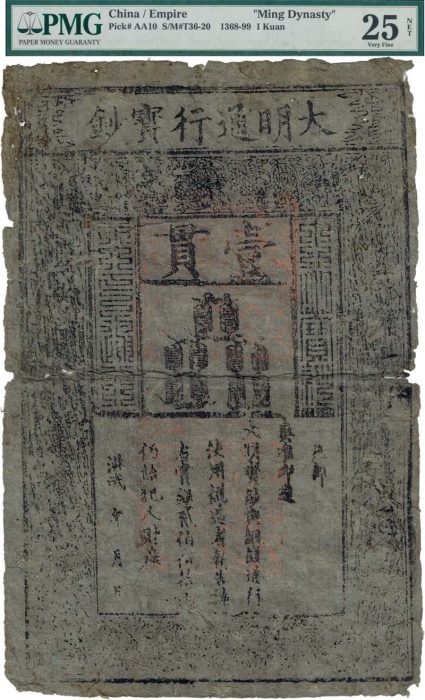 PMG
PAPER MONEY GUARANTY
China / Empire "Ming Dynasty"
Pick# AA10 S/M#T36-20 1368-99 1 Kuan
25 NET
Very Fine
大明通行寶鈔
壹貫
戶部
奏准印造
大明寶鈔與銅錢通行
使用偽造者斬告捕
者賞銀貳佰伍拾
仍給犯人財產
洪武 年 月 日